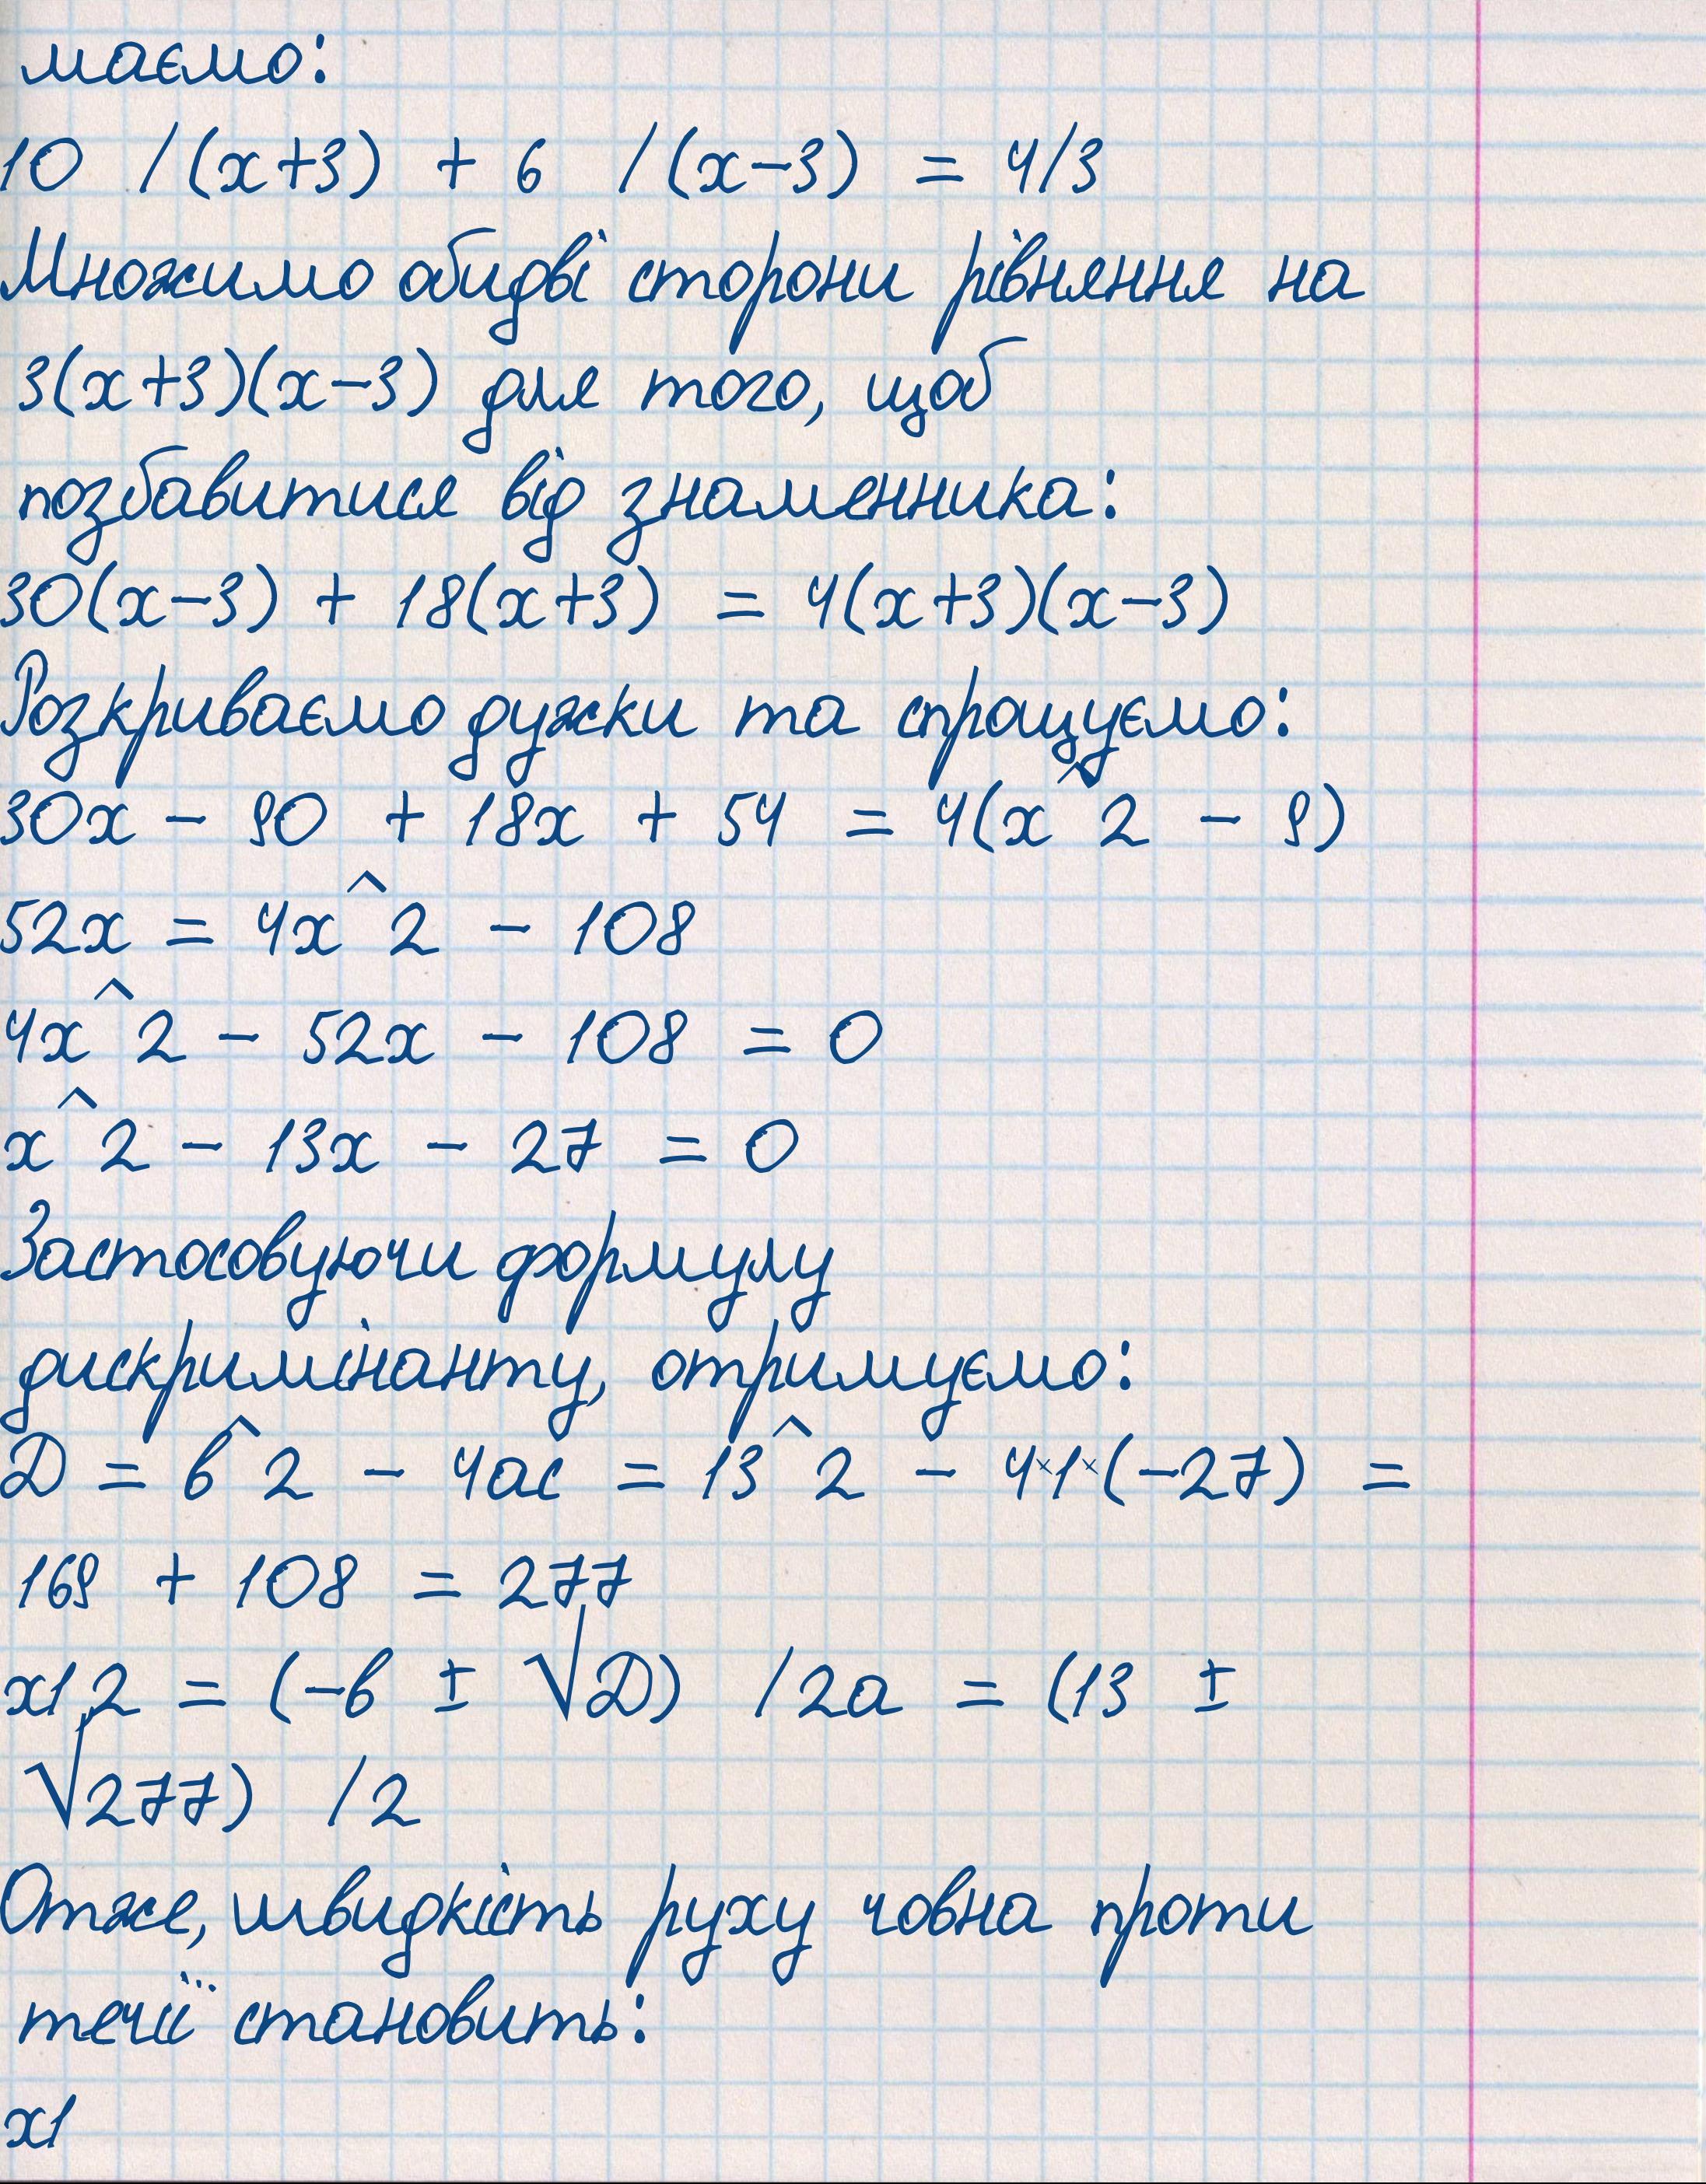 маємо:
10 /(х+3) + 6 /(х-3) = 4/3
Множимо обидві сторони рівняння на
3(х+3)(х-3) для того, щоб
позбавитися від знаменника:
30(х-3) + 18(х+3) = 4(х+3)(х-3)
Розкриваємо дужки та спрощуємо:
30х - 90 + 18х + 54 = 4(х^2 - 9)
52х = 4х^2 - 108
4х^2 - 52х - 108 = 0
х^2 - 13х - 27 = 0
Застосовуючи формулу
дискримінанту, отримуємо:
D = b^2 - 4ac = 13^2 - 4×1×(-27) =
169 + 108 = 277
х1,2 = (-b ± √D) /2a = (13 ±
√277) /2
Отже, швидкість руху човна проти
течії становить:
х1